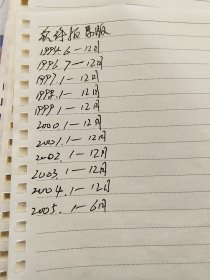 软件报原版
1994.6-12月
1996 7-12月
1997.1-12月
1998.1-12月
1999.1-12月
2000.1-12月
2001.1-12月
2002.1-12月
2003.1-12月
2004.1-12月
2005.1-6月